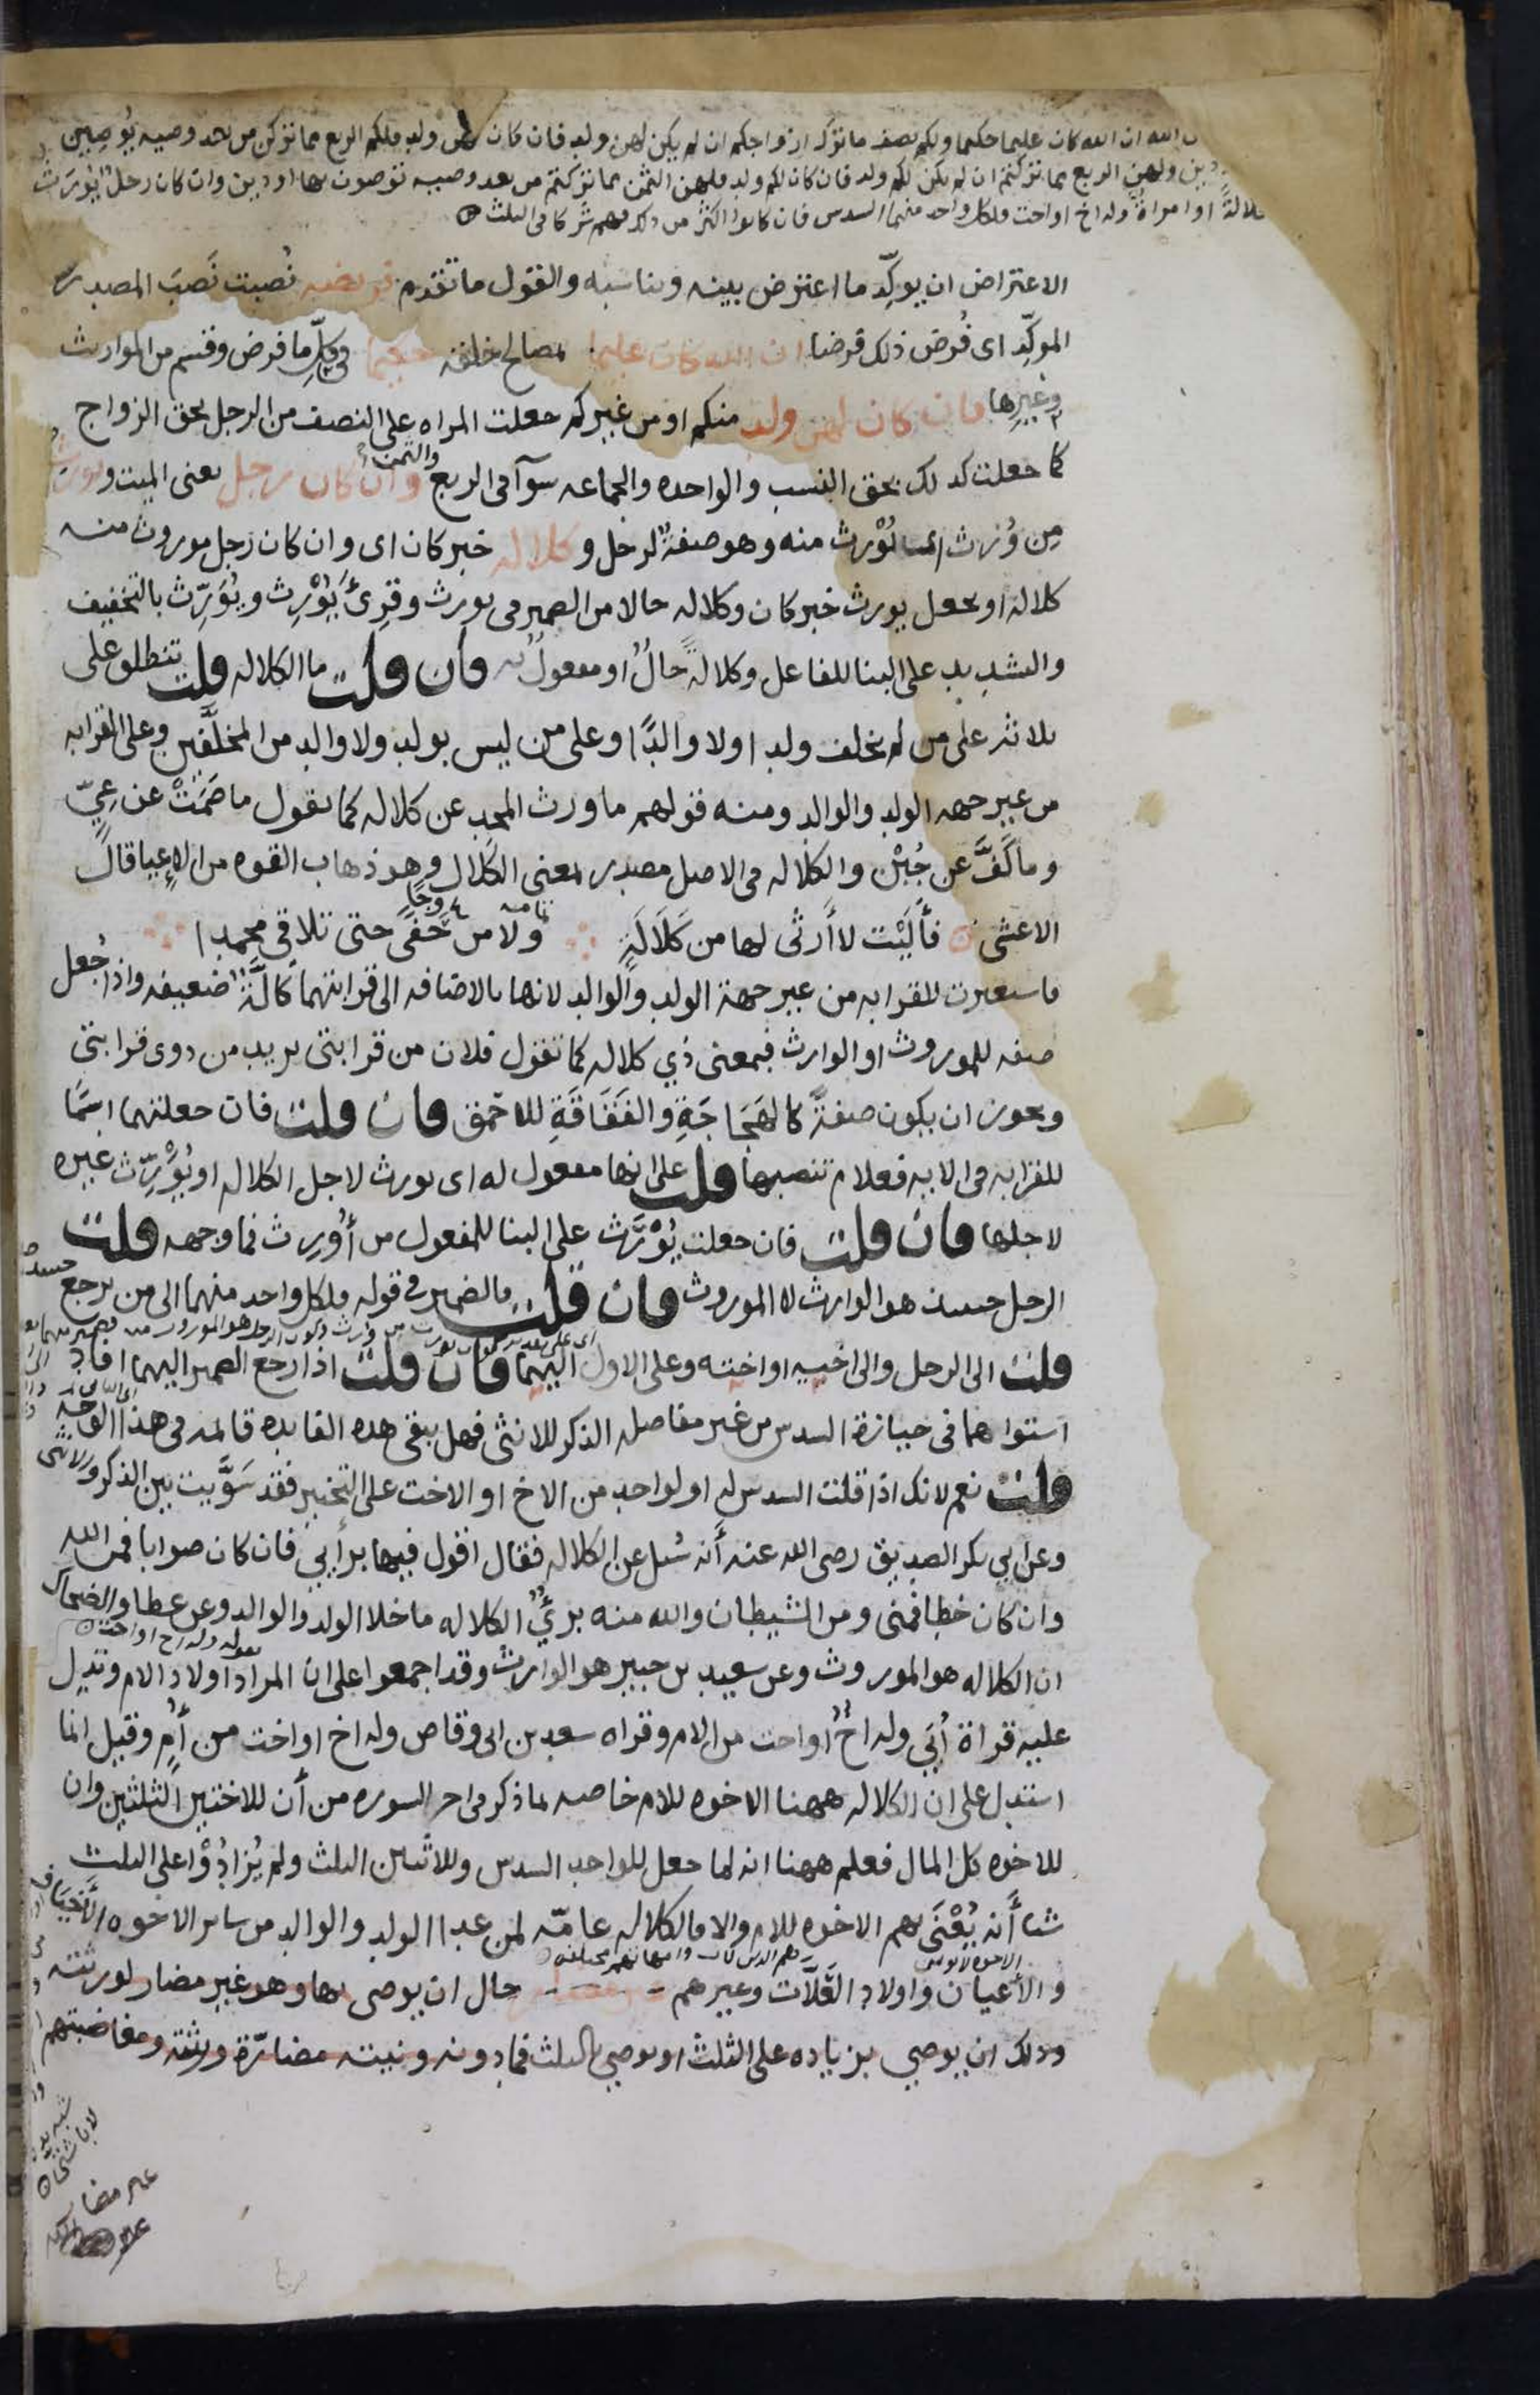 الله ان الله كان عليما حكيما ولكم نصف ما ترك ازواجكم ان لم يكن لهن ولد فان كان لهن ولد فلكم الربع مما تركن من بعد وصيه يوصين
دين ولهن الربع مما تركتم ان لم يكن لكم ولد فان كان لكم ولد فلهن الثمن مما تركتم من بعد وصيه توصون بها او دين وان كان رجل يورث
كلالةً او امراةٌ وله اخ او اخت فلكل واحد منهما السدس فان كانوا اكثر من ذلك فهم شركا فى الثلث
الاعتراض ان يوكِّد ما اعترض بينه ويناسبه والقول ما تقدم فريضه نُصبت نَصبَ المصدر
الموكِّد اى فُرض ذلك فرضا ان الله كان عليما بمصالح خلقه حكيما فى كلِّ ما فرض وقسم من المواريث
وغيرِها فان كان لهن ولد منكم او من غيركم جعلت المراه على النصف من الرجل بحق الزواج
كما جعلت كذلك بحق النسب والواحده والجماعه سوآ فى الربع والثمن وان كان رجل يعنى الميت ويورث
مِن وُرث اى يُوْرث منه وهو صفةٌ لرجل وكلاله خبر كان اى وان كان رجل موروث منه
كلالة او يجعل يورث خبر كان وكلاله حالا من الضمير فى يورث وقرِئَ يُوْرِث ويُوَرِّث بالتخفيف
والتشديد على البنا للفاعل وكلالةً حالٌ او مفعولٌ به فان قلت ما الكلاله قلت تنطلق على
ثلاثه على من لم يخلف ولدا ولا والدًا وعلى من ليس بولد ولا والد من المخلَّفين وعلى القرابه
من غير جهه الولد والوالد ومنه قولهم ما ورث المجد عن كلاله كما تقول ما صَمَتْ عن عِيّ
وما كَفَّ عن جُبْن والكلاله فى الاصل مصدر بمعنى الكَلال وهو ذهاب القوه من الاِعيا قال
الاعشى فألَيْت لا أَرثى لها من كَلَالَةٍ ولا من حَفًى حتى تلاقي محمدا
فاستعيرت للقرابه من غير جهة الولد والوالد لانها بالاضافه الى قرابتهما كالَّةٌ ضعيفه واذا جُعل
صفه للموروث او الوارث فبمعنى ذي كلاله كما تقول فلان من قرابتى يريد من ذوى قرابتى
ويجوز ان يكون صفةً كالهَجَاجَةِ والفَقَاقَةِ للاحمق فان قلت فان جعلتهما اسمًا
للقرابه فى الايه فعلام تنصبها قلت على انها مفعول له اى يورث لاجل الكلاله او يُوَرِّث غيره
لاجلها فان قلت فان جعلت يُوْرَث على البنا للمفعول من أُوْرِث فما وجهه قلت
الرجل حينئذ هو الوارث لا الموروث فان قلت فالضمير فى قوله فلكل واحد منهما الى من يرجع حينئذ
قلت الى الرجل والى اخيه او اخته وعلى الاول اليهما فان قلت اذا رجع الضمير اليهما افاد
استواهما فى حيازة السدس من غير مفاضله الذكر للانثى فهل يبقى هذه الفايده قايمه فى هذا الوجه
قلت نعم لانك اذا قلت السدس له او لواحد من الاخ او الاخت على التخيير فقد سَوَّيت بين الذكر والانثى
وعن ابي بكر الصديق رضى الله عنه أنه سُيل عن الكلاله فقال اقول فيها برأيي فان كان صوابا فمن الله
وان كان خطا فمنى ومن الشيطان والله منه برىٌٔ الكلاله ما خلا الولد والوالد وعن عطا والضحاك
ان الكلاله هو الموروث وعن سعيد بن جبير هو الوارث وقد اجمعوا على ان المراد اولاد الام وتدل
عليه قراة أُبَي وله اخٌ او اخت من الام وقراه سعد بن ابى وقاص وله اخ او اخت من أُم وقيل انما
استدل على ان الكلاله ههنا الاخوه للام خاصه لما ذكر فى اخر السوره من أن للاختين الثلثين وان
للاخوه كل المال فعلم ههنا انه لما جعل للواحد السدس وللاثنين الثلث ولم يُزادُوْا على الثلث
شيا أَنه يُعْنَى بهم الاخوه للام والا فالكلاله عامّه لمن عدا الولد والوالد من ساير الاخوه الأَخيَاف
والأعيان واولاد العَلَّات وغيرهم حال ان يوصى بها وهو غير مضار لورثته
وذلك ان يوصي بزياده على الثلث او يوصي بالثلث فما دونه ونيته مضارّة ورثته ومغاضبتهم
غير مضار